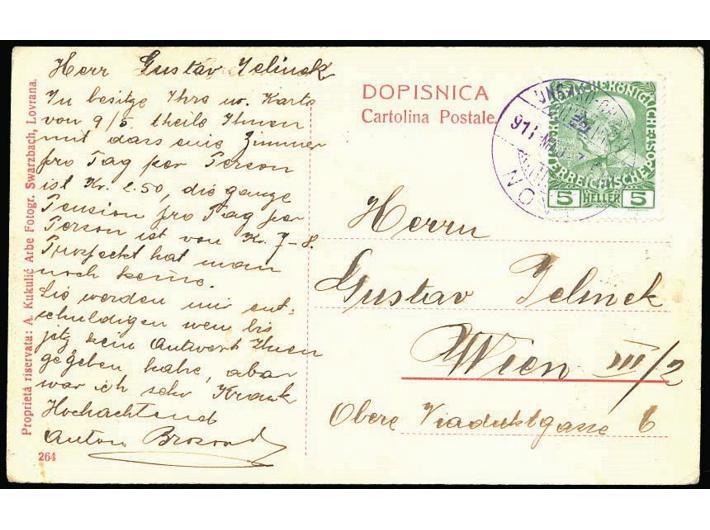 Herr Gustav Jelinek
In besitze Ihre w. Karte
von 9/5. theile Ihnen
mit dass eine Zimmer
pro Tag per Person
ist Kr. 2.50, die ganze
Pension pro Tag per
Person ist von Kr. 7-8.
Prospekt hat man
noch keine.
Sie werden mir ent-
schuldigen wen bis
jetz kein Antwort Ihnen
gegeben habe, aber
war ich sehr Krank
Hochachtend
Anton
264
Proprietà riservata: A. Kukulić Arbe Fotogr. Swarzbach, Lovrana.
DOPISNICA
Cartolina Postale.
911
5 HELLER 5
Herrn
Gustav Jelinek
Wien III/2
Obere Viaduktgasse 6